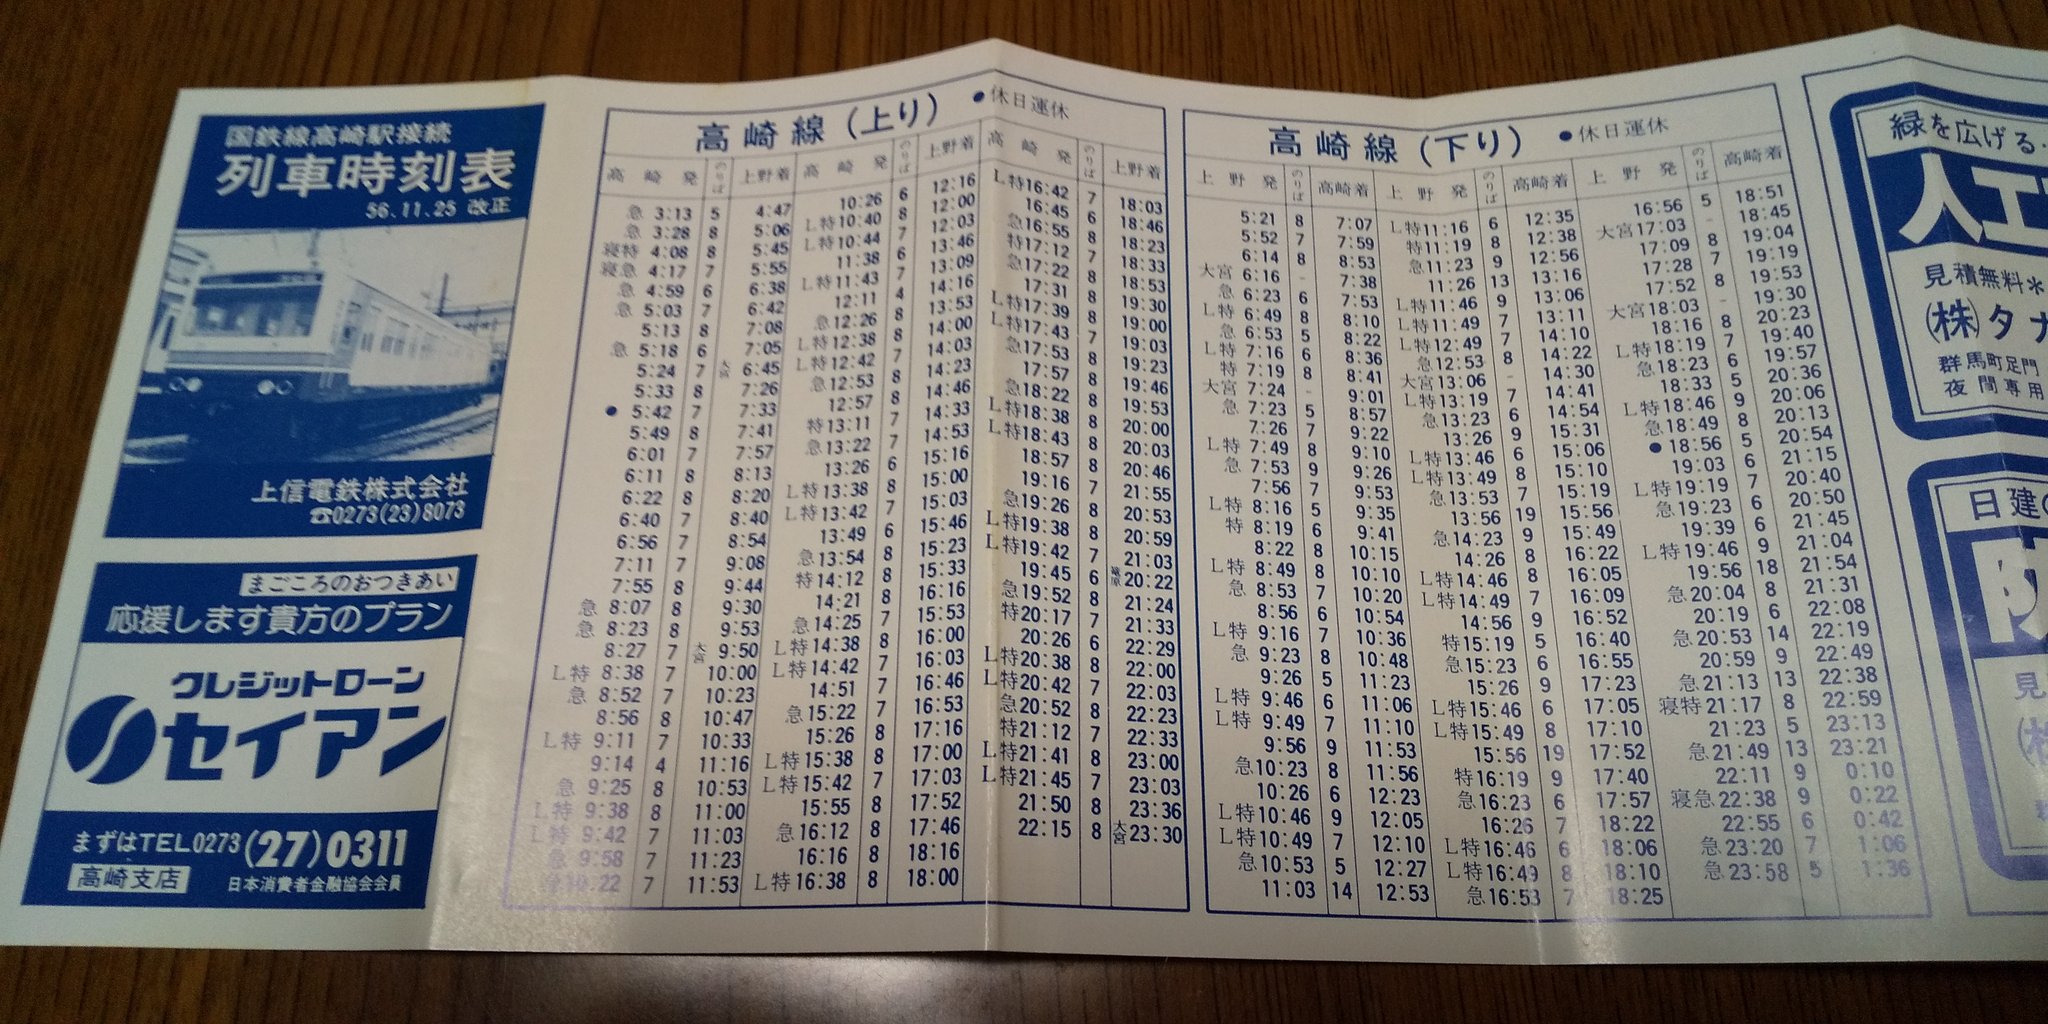 国鉄線高崎駅接続
列車時刻表
56.11.25 改正
上信電鉄株式会社
☎0273(23)8073
まごころのおつきあい
応援します貴方のプラン
クレジットローン
セイアン
まずはTEL0273(27)0311
高崎支店 日本消費者金融協会会員
高崎線(上り) ●休日運休
高崎発 のりば 上野着
急 3:13 5 4:47
急 3:28 8 5:06
寝特 4:08 8 5:45
寝急 4:17 7 5:55
急 4:59 6 6:38
急 5:03 7 6:42
5:13 8 7:08
急 5:18 6 7:05
5:24 7 大宮 6:45
5:33 8 7:26
● 5:42 7 7:33
5:49 8 7:41
6:01 7 7:57
6:11 8 8:13
6:22 8 8:20
6:40 7 8:40
6:56 7 8:54
7:11 7 9:08
7:55 8 9:44
急 8:07 8 9:30
急 8:23 8 9:53
8:27 7 大宮 9:50
L特 8:38 7 10:00
急 8:52 7 10:23
8:56 8 10:47
L特 9:11 7 10:33
9:14 4 11:16
急 9:25 8 10:53
L特 9:38 8 11:00
L特 9:42 7 11:03
急 9:58 7 11:23
急10:22 7 11:53
高崎発 のりば 上野着
10:26 6 12:16
L特10:40 8 12:00
L特10:44 7 12:03
11:38 6 13:46
L特11:43 7 13:09
12:11 4 14:16
急12:26 8 13:53
L特12:38 8 14:00
L特12:42 7 14:03
急12:53 8 14:23
12:57 8 14:46
特13:11 7 14:33
急13:22 7 14:53
13:26 6 15:16
L特13:38 8 15:00
L特13:42 7 15:03
13:49 6 15:46
急13:54 8 15:23
特14:12 8 15:33
14:21 8 16:16
急14:25 7 15:53
L特14:38 8 16:00
L特14:42 7 16:03
14:51 7 16:46
急15:22 7 16:53
15:26 8 17:16
L特15:38 8 17:00
L特15:42 7 17:03
15:55 8 17:52
急16:12 8 17:46
16:16 8 18:16
L特16:38 8 18:00
高崎発 のりば 上野着
L特16:42 7 18:03
16:45 6 18:46
急16:55 8 18:23
特17:12 7 18:33
急17:22 8 18:53
17:31 8 19:30
L特17:39 8 19:00
L特17:43 7 19:03
急17:53 8 19:23
17:57 8 19:46
急18:22 8 19:53
L特18:38 8 20:00
L特18:43 8 20:03
18:57 8 20:46
19:16 7 21:55
急19:26 8 20:53
L特19:38 8 20:59
L特19:42 7 21:03
19:45 6 篭原20:22
急19:52 8 21:24
特20:17 7 21:33
20:26 6 22:29
L特20:38 8 22:00
L特20:42 7 22:03
急20:52 8 22:23
特21:12 7 22:33
L特21:41 8 23:00
L特21:45 7 23:03
21:50 8 23:36
22:15 8 大宮23:30
高崎線(下り) ●休日運休
上野発 のりば 高崎着
5:21 8 7:07
5:52 7 7:59
6:14 8 8:53
大宮 6:16 - 7:38
急 6:23 6 7:53
L特 6:49 8 8:10
急 6:53 5 8:22
L特 7:16 6 8:36
特 7:19 8 8:41
大宮 7:24 - 9:01
急 7:23 5 8:57
7:26 7 9:22
L特 7:49 8 9:10
急 7:53 9 9:26
7:56 7 9:53
L特 8:16 5 9:35
特 8:19 6 9:41
8:22 8 10:15
L特 8:49 8 10:10
急 8:53 7 10:20
8:56 6 10:54
L特 9:16 7 10:36
急 9:23 8 10:48
9:26 5 11:23
L特 9:46 6 11:06
L特 9:49 7 11:10
9:56 9 11:53
急10:23 8 11:56
10:26 6 12:23
L特10:46 9 12:05
L特10:49 7 12:10
急10:53 5 12:27
11:03 14 12:53
上野発 のりば 高崎着
L特11:16 6 12:35
特11:19 8 12:38
急11:23 9 12:56
11:26 13 13:16
L特11:46 9 13:06
L特11:49 7 13:11
L特12:49 7 14:10
急12:53 8 14:22
大宮13:06 - 14:30
L特13:19 7 14:41
急13:23 6 14:54
13:26 9 15:31
L特13:46 6 15:06
L特13:49 8 15:10
急13:53 7 15:19
13:56 19 15:56
急14:23 9 15:49
14:26 8 16:22
L特14:46 8 16:05
L特14:49 7 16:09
14:56 9 16:52
特15:19 5 16:40
急15:23 6 16:55
15:26 9 17:23
L特15:46 6 17:05
L特15:49 8 17:10
15:56 19 17:52
特16:19 9 17:40
急16:23 6 17:57
16:26 7 18:22
L特16:46 6 18:06
L特16:49 8 18:10
急16:53 7 18:25
上野発 のりば 高崎着
16:56 5 18:51
大宮17:03 - 18:45
17:09 8 19:04
17:28 7 19:19
17:52 8 19:53
大宮18:03 - 19:30
18:16 8 20:23
L特18:19 7 19:40
急18:23 6 19:57
18:33 5 20:36
L特18:46 9 20:06
急18:49 8 20:13
●18:56 5 20:54
19:03 6 21:15
L特19:19 7 20:40
急19:23 6 20:50
19:39 6 21:45
L特19:46 9 21:04
19:56 18 21:54
急20:04 8 21:31
20:19 6 22:08
急20:53 14 22:19
20:59 9 22:49
急21:13 13 22:38
寝特21:17 8 22:59
21:23 5 23:13
急21:49 13 23:21
22:11 9 0:10
寝急22:38 9 0:22
22:55 6 0:42
急23:20 7 1:06
急23:58 5 1:36
緑を広げる
人工
見積無料*
(株)タナ
群馬町足門
夜間専用
日建の
見
(株)